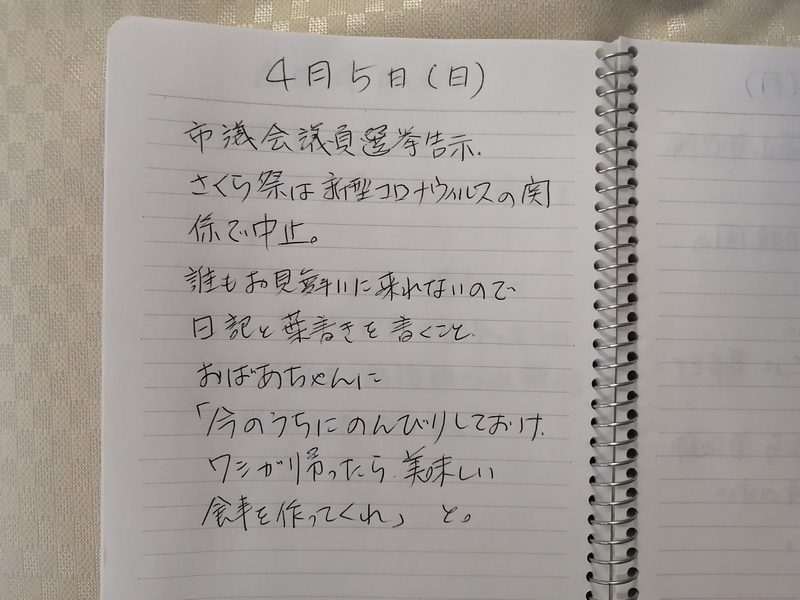 4月5日(日)
市議会議員選挙告示.
さくら祭は新型コロナウィルスの関
係で中止。
誰もお見舞いに来れないので
日記と葉書きを書くこと.
おばあちゃんに
「今のうちにのんびりしておけ.
ワシが帰ったら.美味しい
食事を作ってくれ」 と。